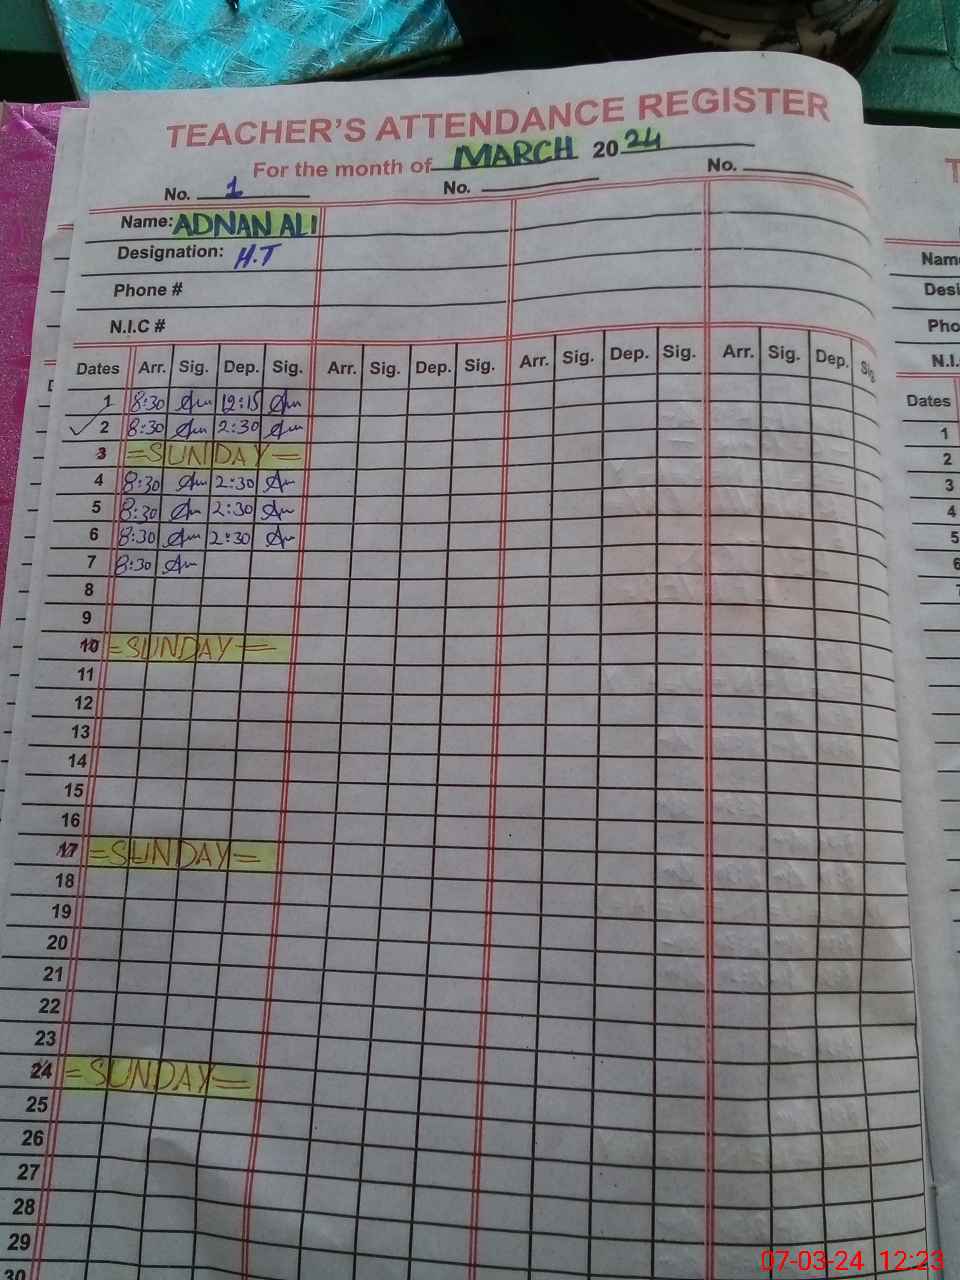 TEACHER'S ATTENDANCE REGISTER
For the month of MARCH 2024
No. 1 No. No.
Name: ADNAN ALI
Designation: H.T
Phone #
N.I.C #
Dates Arr. Sig. Dep. Sig. Arr. Sig. Dep. Sig. Arr. Sig. Dep. Sig. Arr. Sig. Dep. Sig.
1 8:30 12:15
2 8:30 2:30
3 =SUNDAY=
4 8:30 2:30
5 8:30 2:30
6 8:30 2:30
7 8:30
8
9
10 =SUNDAY=
11
12
13
14
15
16
17 =SUNDAY=
18
19
20
21
22
23
24 =SUNDAY=
25
26
27
28
29
30
Name
Desi
Pho
N.I.
Dates
1
2
3
4
5
6
07-03-24 12:23